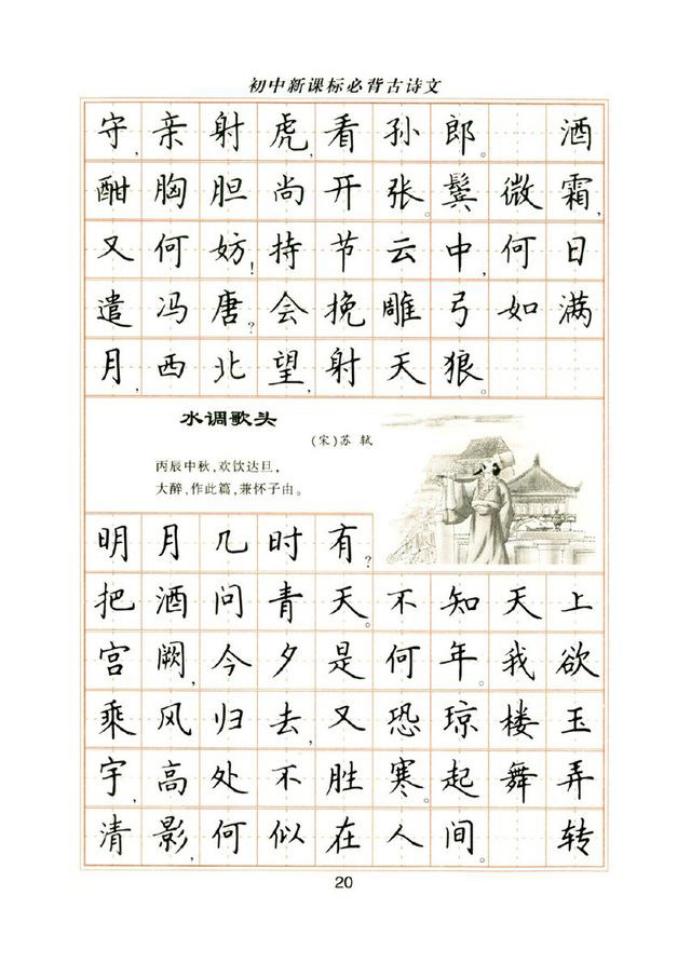 初中新课标必背古诗文
守,亲射虎,看孙郎。 酒
酣胸胆尚开张。鬓微霜,
又何妨!持节云中,何日
遣冯唐?会挽雕弓如满
月,西北望,射天狼。
水调歌头
(宋)苏 轼
丙辰中秋,欢饮达旦,
大醉,作此篇,兼怀子由。
明月几时有?
把酒问青天。不知天上
宫阙,今夕是何年。我欲
乘风归去,又恐琼楼玉
宇,高处不胜寒。起舞弄
清影,何似在人间。 转
20